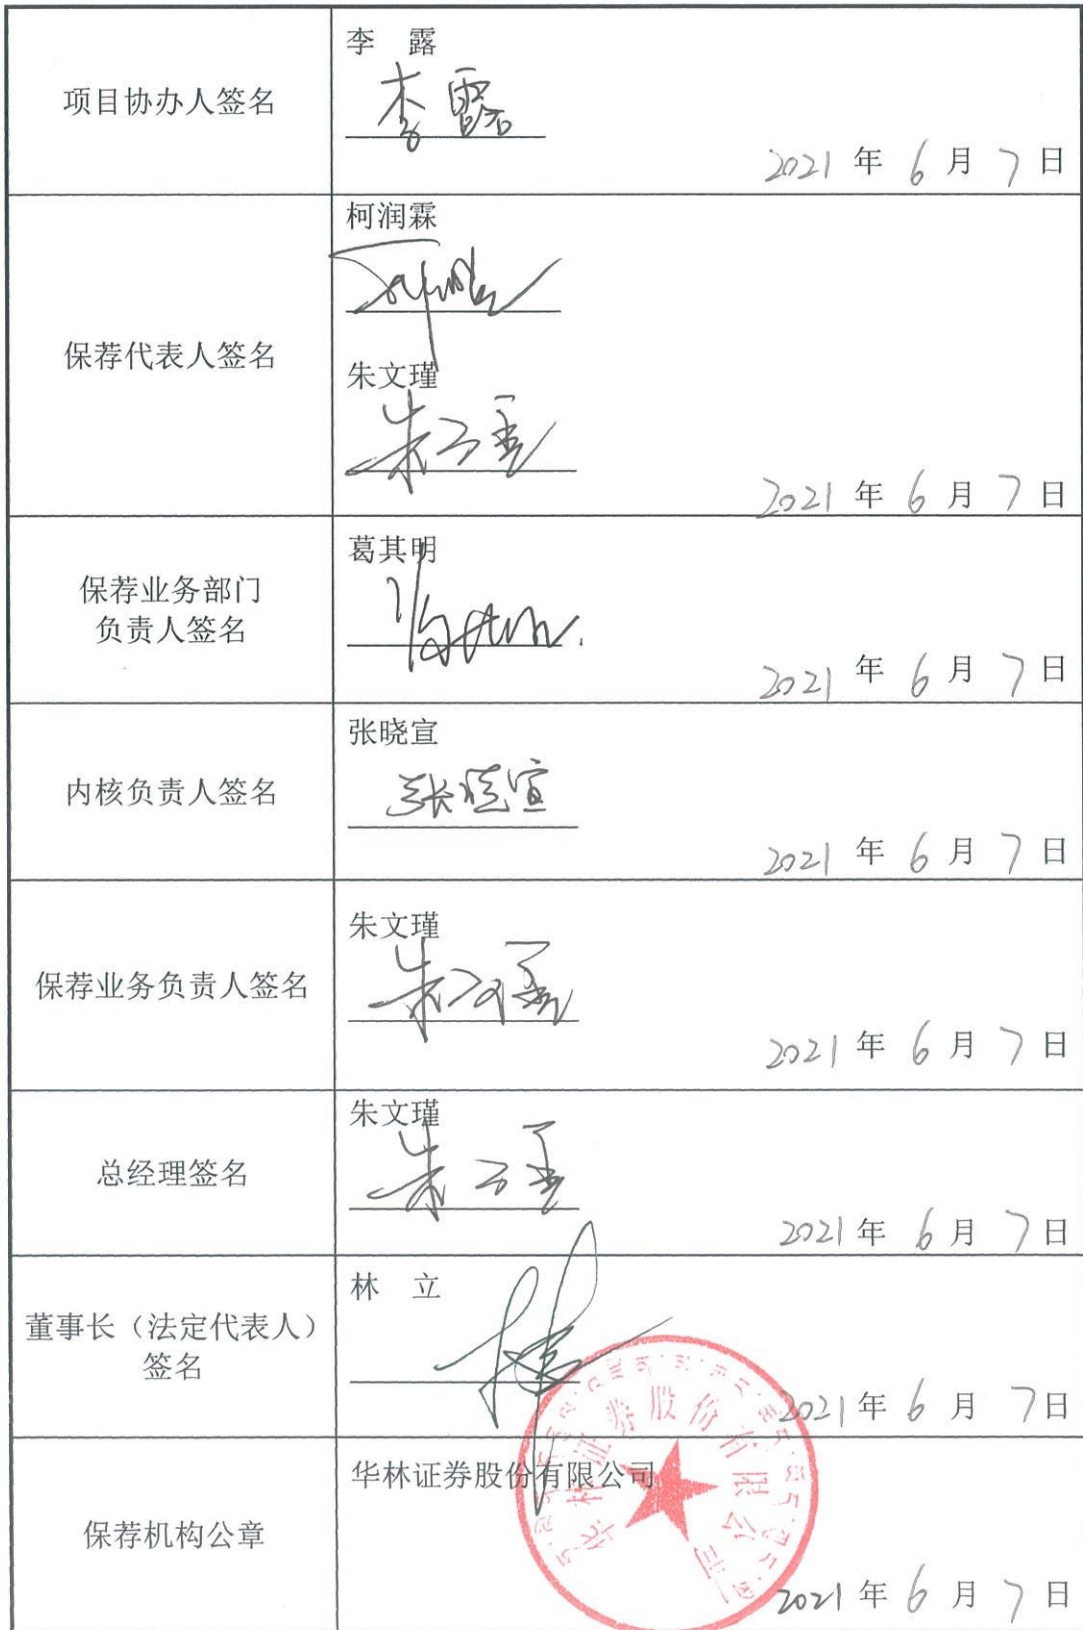 项目协办人签名
李 露
李露
2021 年 6 月 7 日
保荐代表人签名
柯润霖
朱文瑾
朱文瑾
2021 年 6 月 7 日
保荐业务部门
负责人签名
葛其明
2021 年 6 月 7 日
内核负责人签名
张晓宣
张晓宣
2021 年 6 月 7 日
保荐业务负责人签名
朱文瑾
朱文瑾
2021 年 6 月 7 日
总经理签名
朱文瑾
朱文瑾
2021 年 6 月 7 日
董事长（法定代表人）
签名
林 立
2021 年 6 月 7 日
保荐机构公章
华林证券股份有限公司
华林证券股份有限公司
2021 年 6 月 7 日